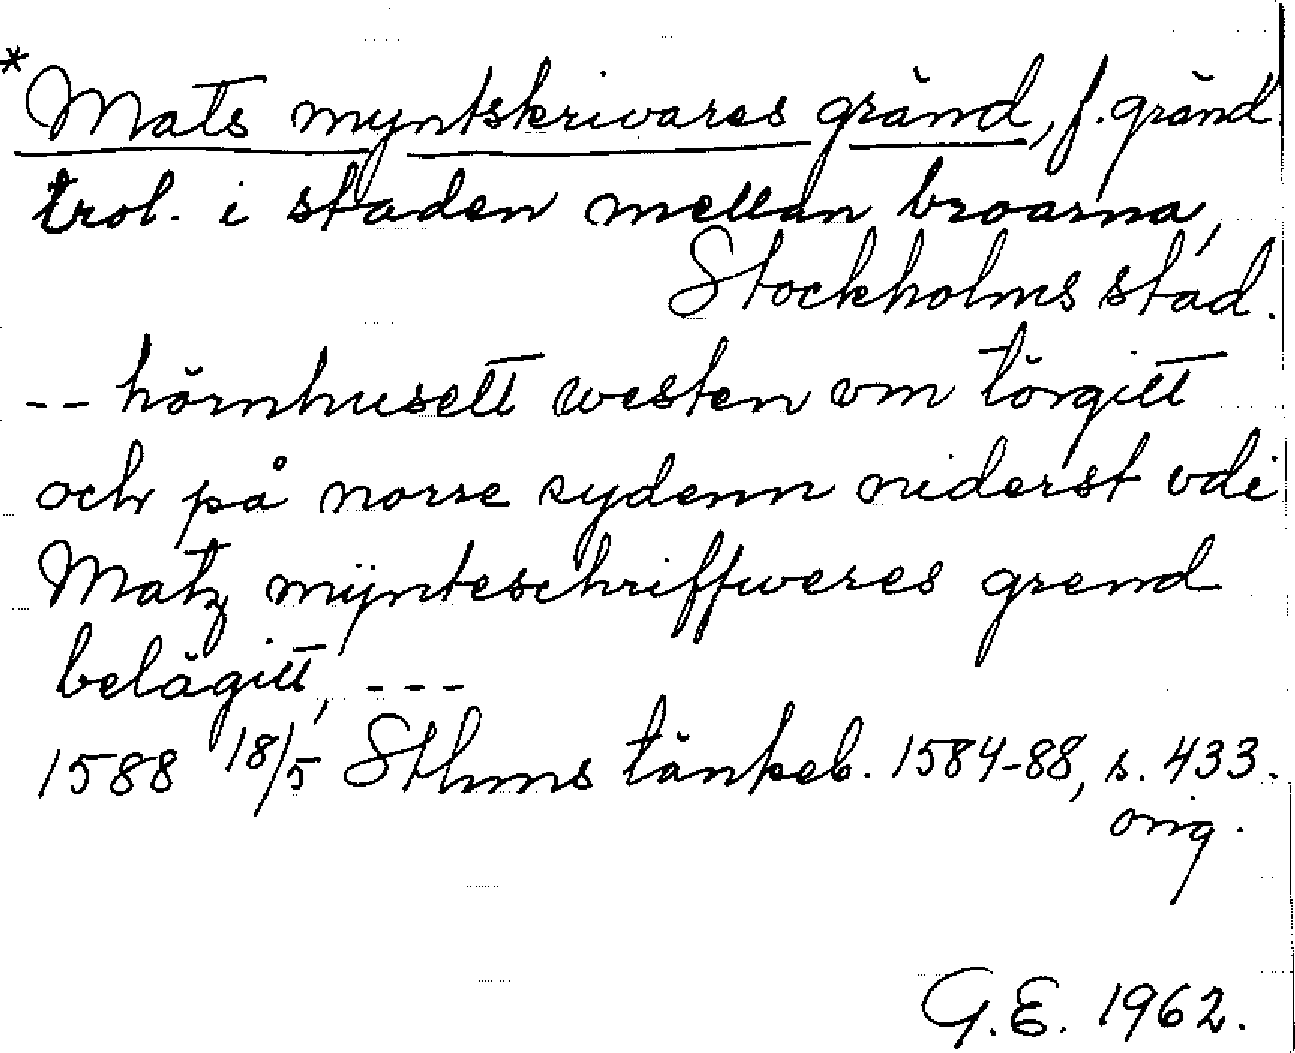 *Mats myntskrivares gränd, f. gränd
trol. i staden mellan broarna,
Stockholms stad.
-- hörnhusett westen vm törgitt
och på norre sydenn niderst vdi
Matz mÿnteschriffweres grend
belägitt, ---
1588 18/5 Sthms tänkeb. 1584-88, s. 433.
orig.
G.E. 1962.